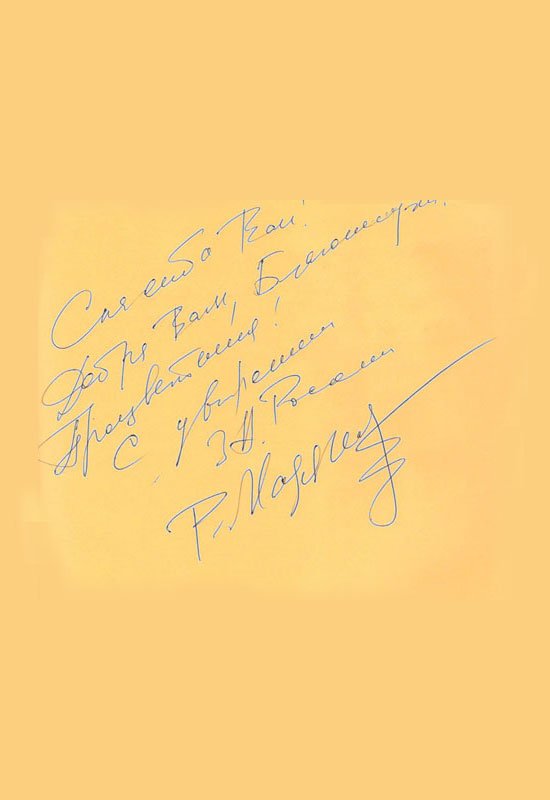 Спасибо Вам!
Добра Вам, Благополучия,
Процветания!
С уважением
З.А. России
Р.